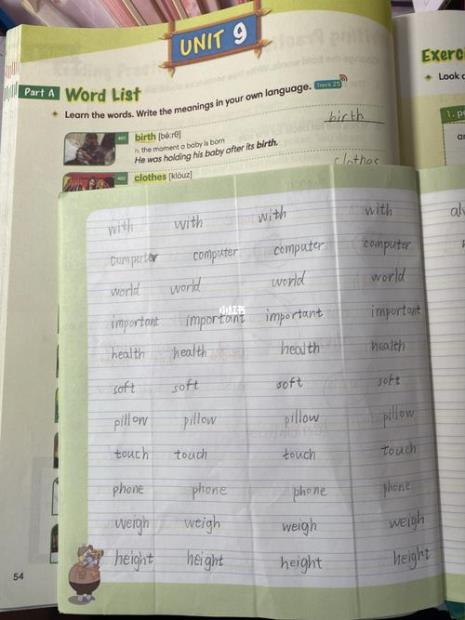 UNIT 9
Exerc
Part A Word List
Learn the words. Write the meanings in your own language. Track 25
birth
birth [bə́:rθ]
n. the moment a baby is born
He was holding his baby after its birth.
clothes
clothes [klóuz]
with with with with
computer computer computer computer
world world world world
小红书
important important important important
health health health health
soft soft soft soft
pillow pillow pillow pillow
touch touch touch touch
phone phone phone phone
weigh weigh weigh weigh
height height height height
54